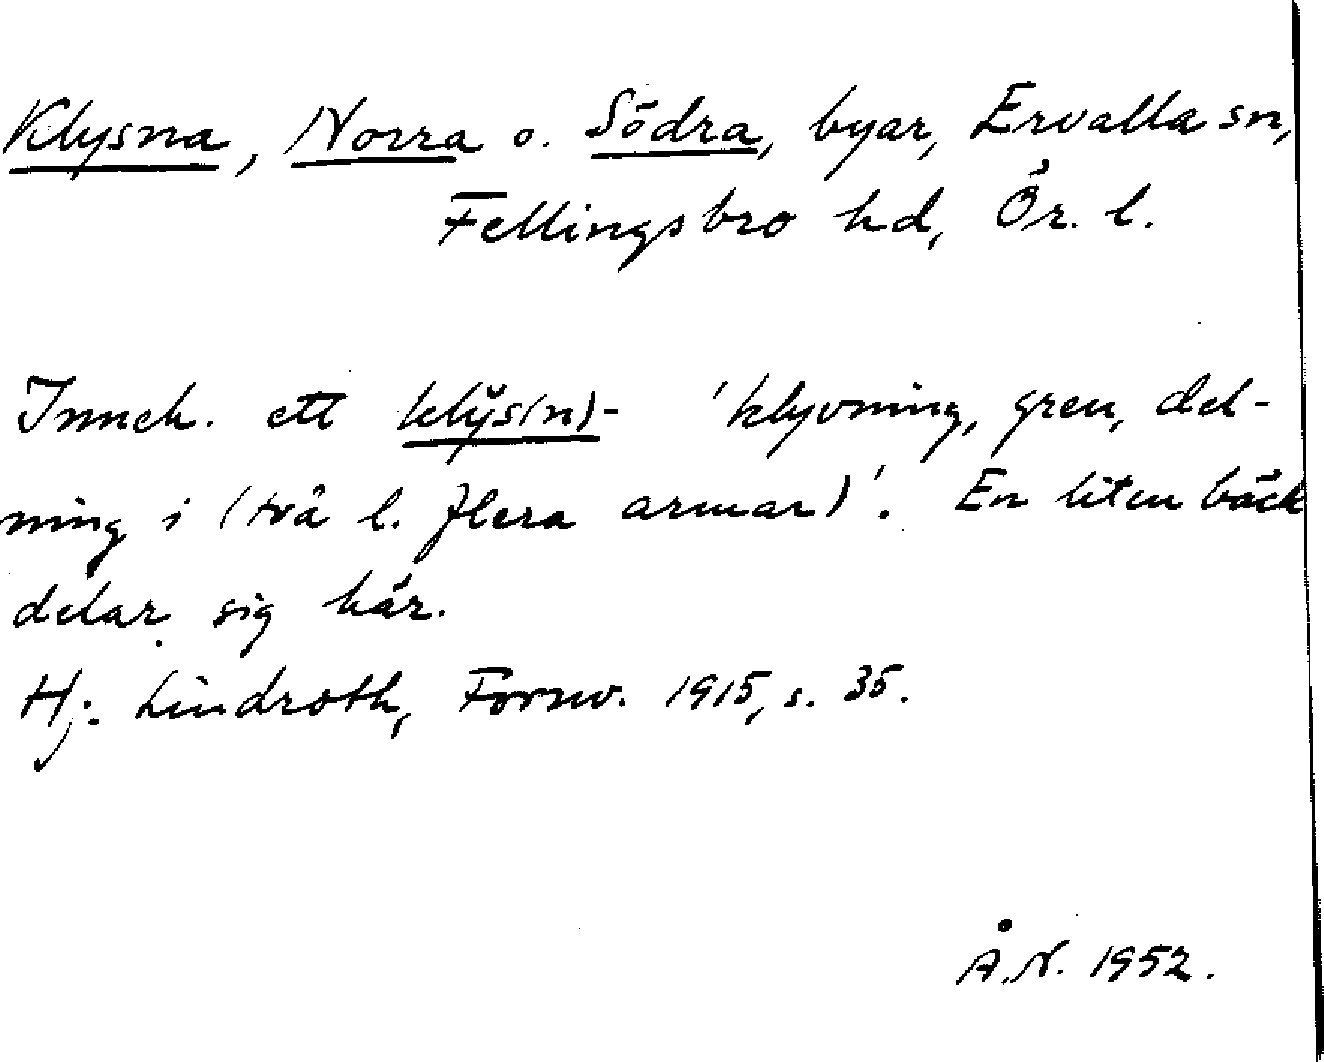 Klysna, Norra o. Södra, byar, Ervalla sn,
Fellingsbro hd, Ör. l.
Inneh. ett klўs(n)- 'klyvning, gren, del-
ning i (två l. flera armar)'. En liten bäck
delar sig här.
Hj. Lindroth, Fornv. 1915, s. 35.
Å.N. 1952.